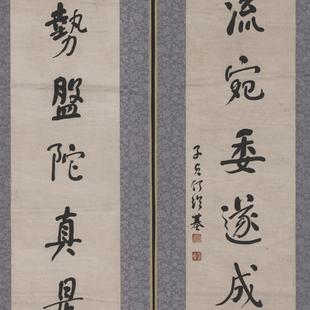 流宛委遂成
子貞何紹基
勢盤陀真是